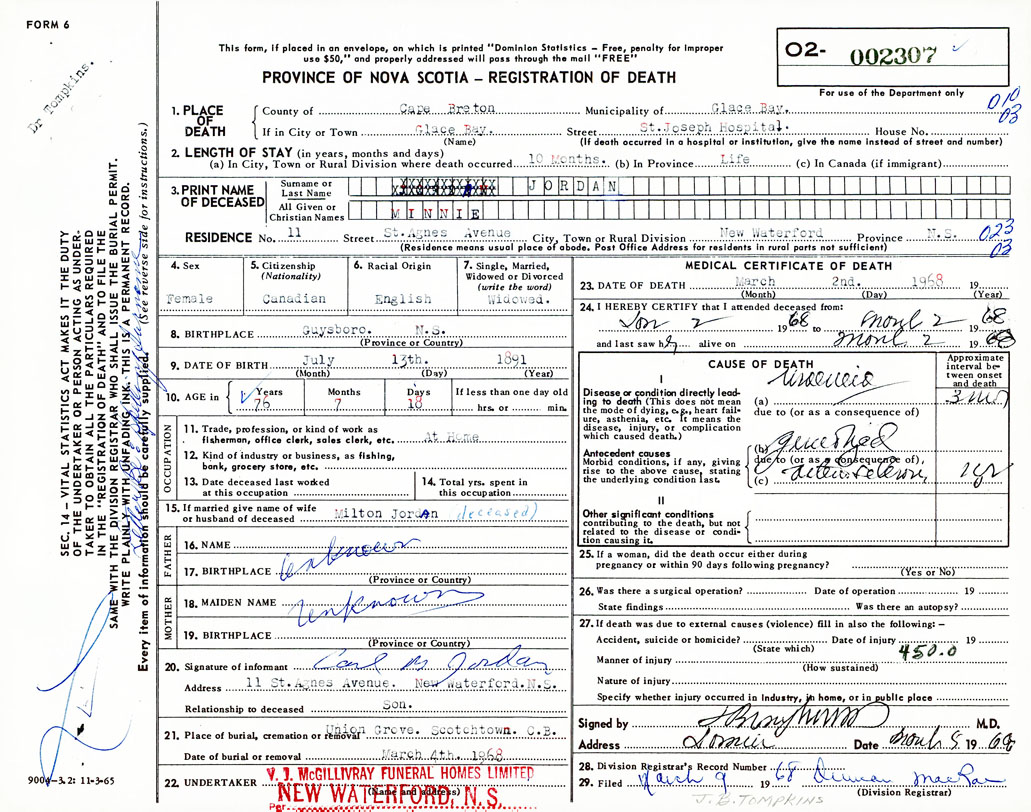 FORM 6
This form, if placed in an envelope, on which is printed "Dominion Statistics – Free, penalty for improper
use $50," and properly addressed will pass through the mail "FREE"
PROVINCE OF NOVA SCOTIA – REGISTRATION OF DEATH
O2- 002307
For use of the Department only
010
03
Dr Tompkins.
1. PLACE OF DEATH
County of Cape Breton Municipality of Glace Bay.
If in City or Town Glace Bay. Street St.Joseph Hospital. House No.
(Name) (If death occurred in a hospital or institution, give the name instead of street and number)
2. LENGTH OF STAY (in years, months and days)
(a) In City, Town or Rural Division where death occurred 10 Months. (b) In Province Life (c) In Canada (if immigrant)
3. PRINT NAME OF DECEASED
Surname or Last Name JORDAN
All Given or Christian Names MINNIE
RESIDENCE No. 11 Street St.Agnes Avenue City, Town or Rural Division New Waterford Province N.S.
(Residence means usual place of abode. Post Office Address for residents in rural parts not sufficient)
023
03
4. Sex
Female
5. Citizenship
(Nationality)
Canadian
6. Racial Origin
English
7. Single, Married,
Widowed or Divorced
(write the word)
Widowed.
8. BIRTHPLACE Guysboro. N.S.
(Province or Country)
9. DATE OF BIRTH July 13th. 1891
(Month) (Day) (Year)
10. AGE in
Years 76
Months 7
Days 18
If less than one day old
hrs. or min.
OCCUPATION
11. Trade, profession, or kind of work as
fisherman, office clerk, sales clerk, etc. At Home
12. Kind of industry or business, as fishing,
bank, grocery store, etc.
13. Date deceased last worked
at this occupation
14. Total yrs. spent in
this occupation
15. If married give name of wife
or husband of deceased Milton Jordan (deceased)
FATHER
16. NAME
unknown
17. BIRTHPLACE
(Province or Country)
MOTHER
18. MAIDEN NAME unknown
19. BIRTHPLACE
(Province or Country)
20. Signature of informant Carl M Jordan
Address 11 St.Agnes Avenue. New Waterford.N.S.
Relationship to deceased Son.
21. Place of burial, cremation or removal Union Grove. Scotchtown. C.B.
Date of burial or removal March 4th. 1968
22. UNDERTAKER V. J. McGILLIVRAY FUNERAL HOMES LIMITED
(Name and address)
NEW WATERFORD, N.S.
Per
MEDICAL CERTIFICATE OF DEATH
23. DATE OF DEATH March 2nd. 1968 19
(Month) (Day) (Year)
24. I HEREBY CERTIFY that I attended deceased from:
Jan 2 1968 to March 2 1968
and last saw her alive on March 2 1968
CAUSE OF DEATH
Approximate
interval be-
tween onset
and death
I
Disease or condition directly lead-
ing to death (This does not mean
the mode of dying, e.g., heart fail-
ure, asthenia, etc. It means the
disease, injury, or complication
which caused death.)
(a) 3 mos
due to (or as a consequence of)
Antecedent causes
Morbid conditions, if any, giving
rise to the above cause, stating
the underlying condition last.
(b) generalized
due to (or as a consequence of),
(c) 1 yr
II
Other significant conditions
contributing to the death, but not
related to the disease or condi-
tion causing it.
25. If a woman, did the death occur either during
pregnancy or within 90 days following pregnancy?
(Yes or No)
26. Was there a surgical operation? Date of operation 19
State findings Was there an autopsy?
27. If death was due to external causes (violence) fill in also the following: –
Accident, suicide or homicide? Date of injury 19
(State which)
450.0
Manner of injury
(How sustained)
Nature of injury
Specify whether injury occurred in industry, in home, or in public place
Signed by M.D.
Address Date March 8 1968
28. Division Registrar's Record Number
29. Filed March 9 1968
(Division Registrar)
J.B.TOMPKINS
SEC. 14 – VITAL STATISTICS ACT MAKES IT THE DUTY
OF THE UNDERTAKER OR PERSON ACTING AS UNDER-
TAKER TO OBTAIN ALL THE PARTICULARS REQUIRED
IN THE "REGISTRATION OF DEATH" AND TO FILE THE
SAME WITH THE DIVISION REGISTRAR WHO SHALL ISSUE THE BURIAL PERMIT.
WRITE PLAINLY WITH UNFADING INK. THIS IS A PERMANENT RECORD.
Every item of information should be carefully supplied. (See reverse side for instructions.)
9004-3.2: 11-3-65